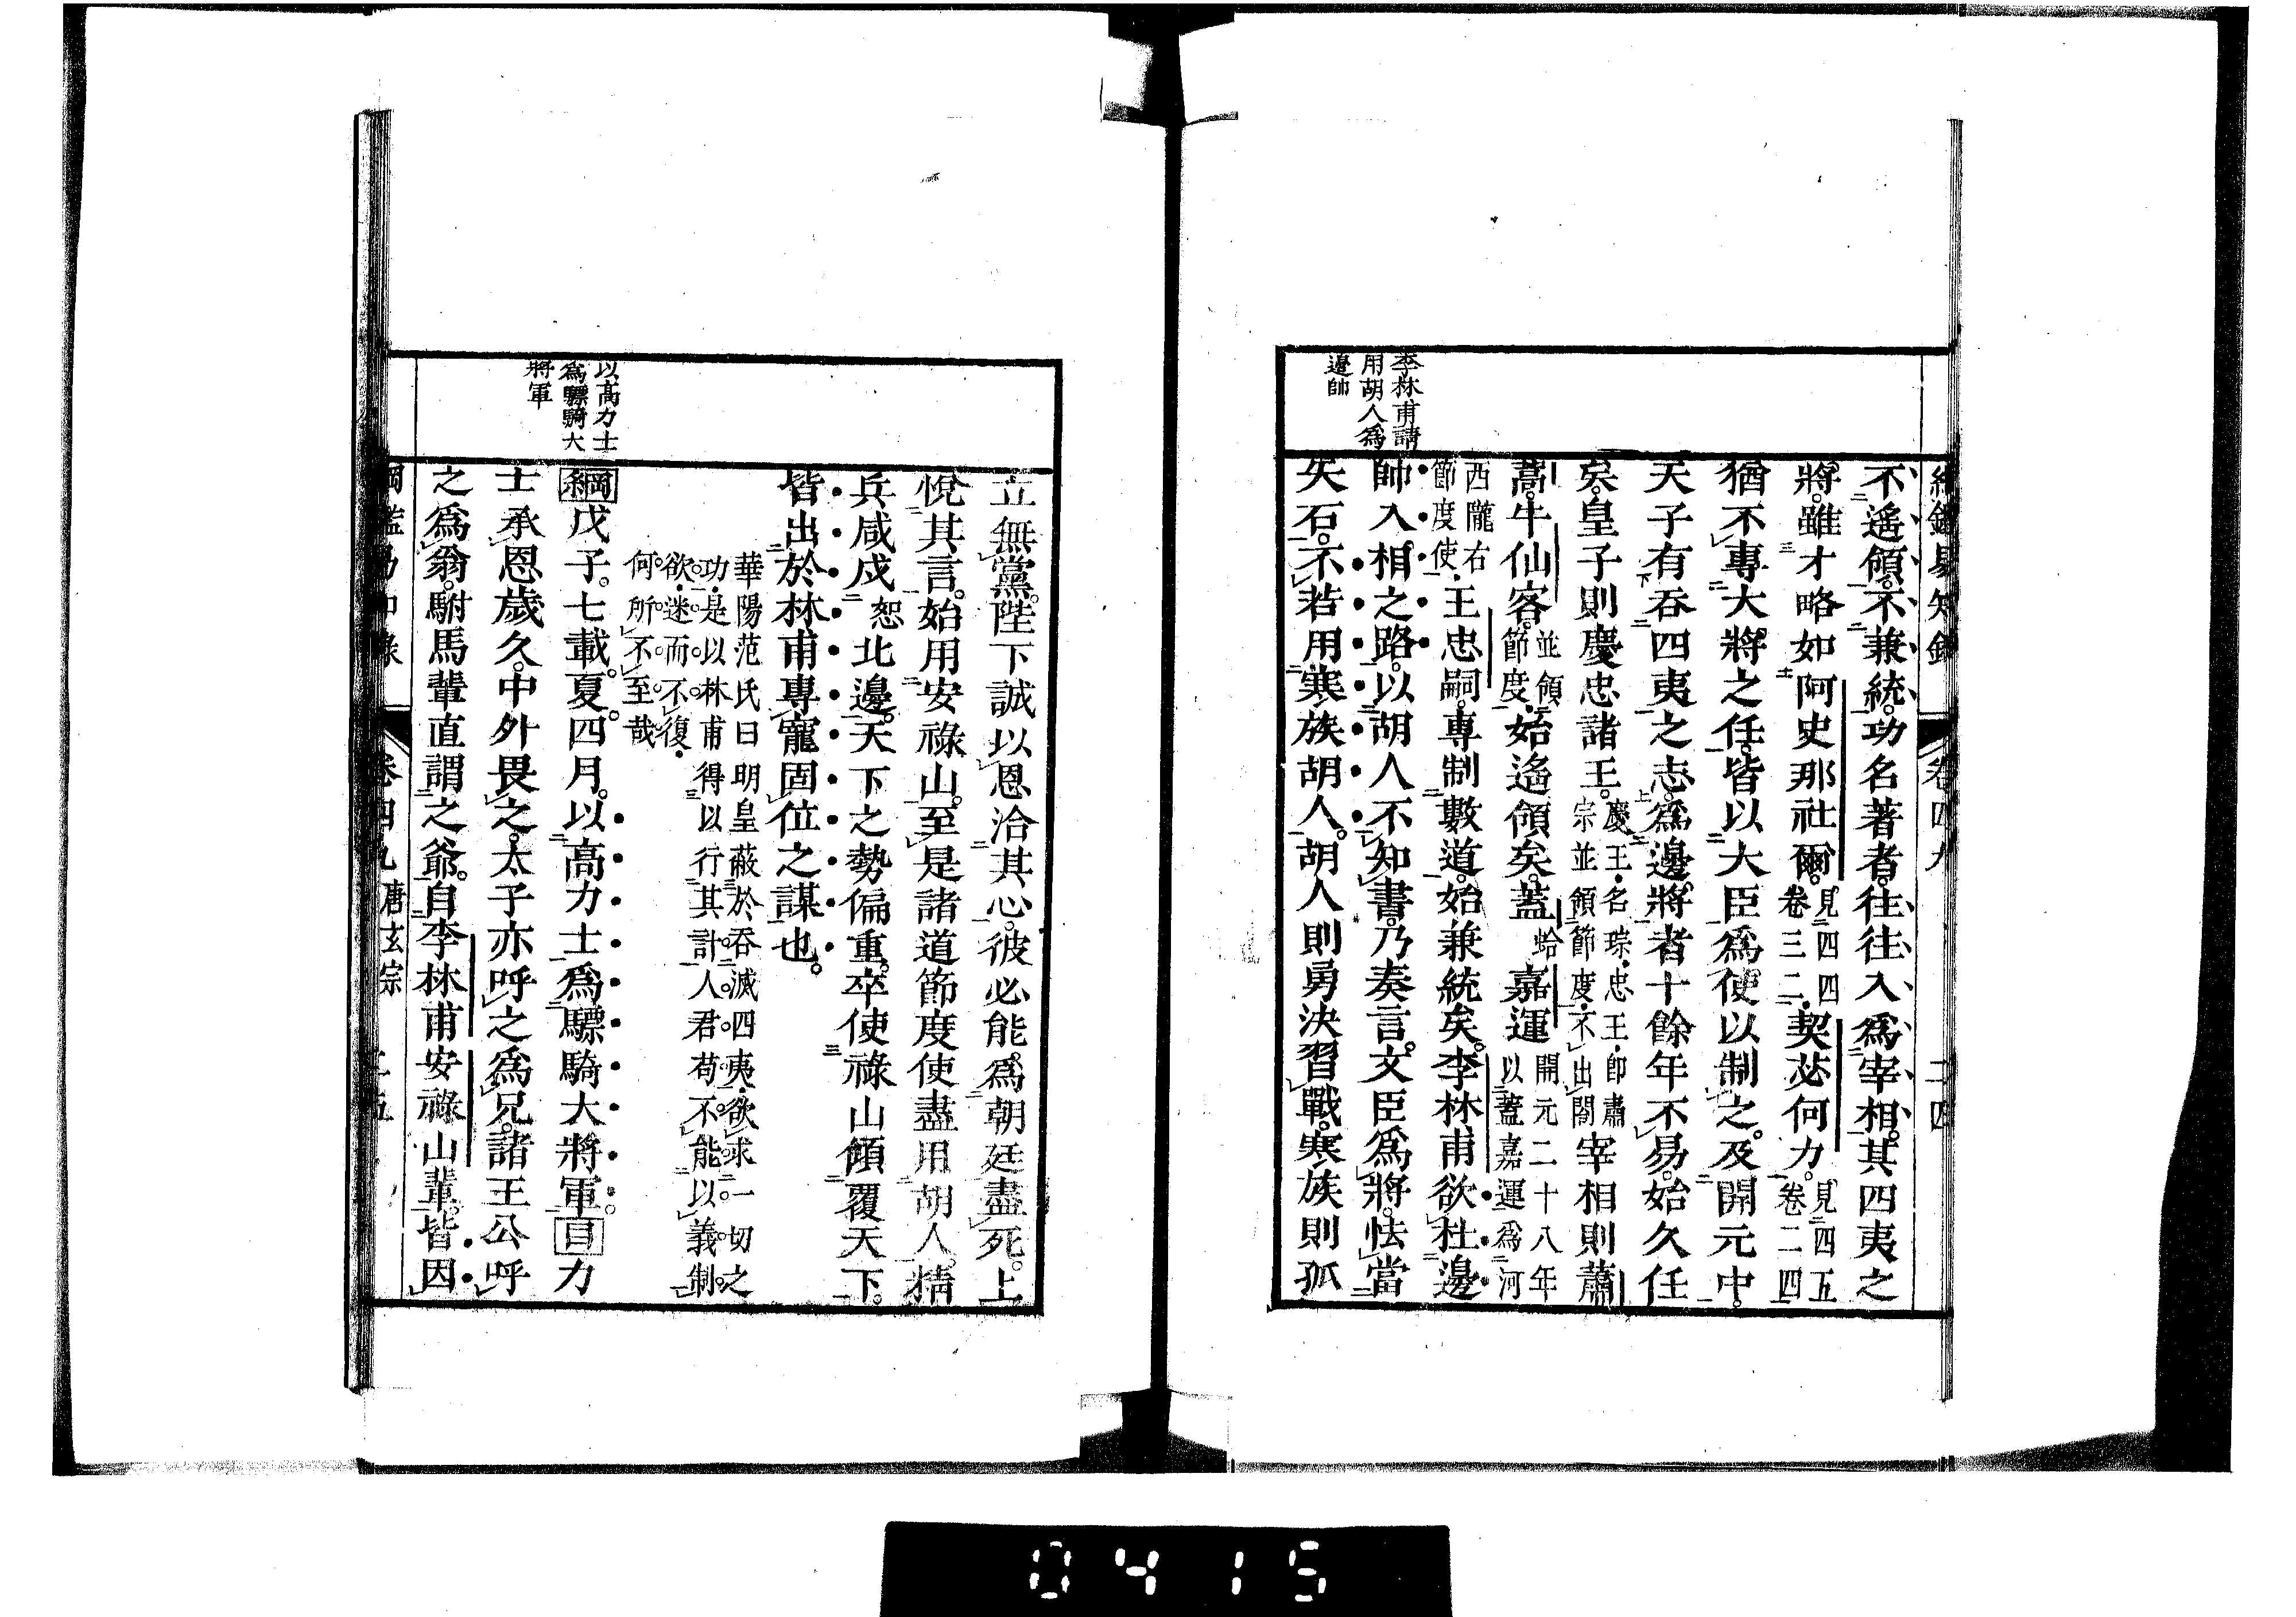 綱鑑易知錄 卷四九 二四
李林甫請
用胡人爲
邊帥
不遙領。不兼統。功名著者。往往入爲宰相。其四夷之
將。雖才略如阿史那社爾。見四四卷三二契苾何力。見四五卷二四
猶不專大將之任。皆以大臣爲使以制之。及開元中。
天子有吞四夷之志。爲邊將者十餘年不易。始久任
矣。皇子則慶忠諸王。慶王名琮忠王卽肅宗並領節度不出閤宰相則蕭
嵩。牛仙客。並領節度始遙領矣。蓋蛤嘉運開元二十八年以蓋嘉運爲河
西隴右節度使王忠嗣。專制數道。始兼統矣。李林甫欲杜邊
帥入相之路。以胡人不知書。乃奏言。文臣爲將。怯當
矢石。不若用寒族胡人。胡人則勇決習戰。寒族則孤
立無黨。陛下誠以恩洽其心。彼必能爲朝廷盡死。上
悅其言。始用安祿山。至是諸道節度使盡用胡人。精
兵咸戍恕北邊。天下之勢偏重。卒使祿山傾覆天下。
皆出於林甫專寵固位之謀也。
華陽范氏曰明皇蔽於吞滅四夷欲求一切之
功是以林甫得以行其計人君苟不能以義制
欲迷而不復
何所不至哉
以高力士
爲驃騎大
將軍
綱戊子。七載。夏四月。以高力士爲驃騎大將軍。目力
士承恩歲久。中外畏之。太子亦呼之爲兄。諸王公呼
之爲翁。駙馬輩直謂之爺。自李林甫安祿山輩。皆因
綱鑑易知錄 卷四九 唐玄宗 二五